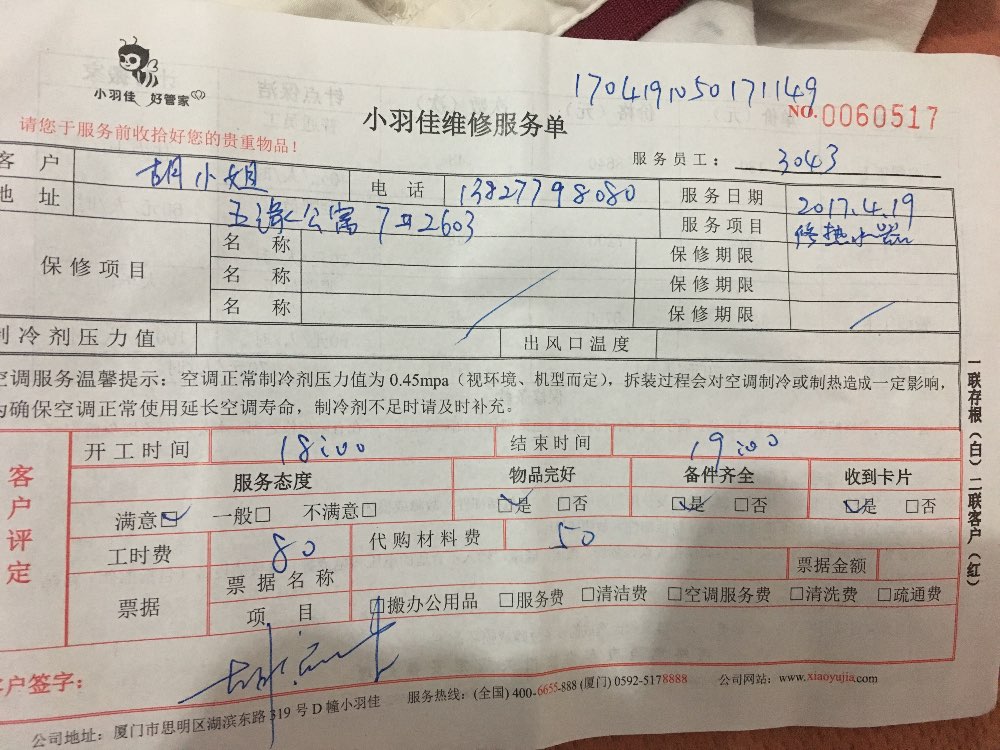 小羽佳 好管家
1704191050171149
请您于服务前收拾好您的贵重物品!
小羽佳维修服务单
NO.0060517
服务员工: 3043
客 户 胡小姐 电 话 13827798080 服务日期 2017.4.19
地 址 五缘公寓 7#2603 服务项目 修热水器
保修项目 名 称 保修期限
名 称 保修期限
名 称 保修期限
制冷剂压力值 出风口温度
空调服务温馨提示: 空调正常制冷剂压力值为 0.45mpa (视环境、机型而定), 拆装过程会对空调制冷或制热造成一定影响,
为确保空调正常使用延长空调寿命, 制冷剂不足时请及时补充。
客户评定
开工时间 18:00 结束时间 19:00
服务态度 物品完好 备件齐全 收到卡片
满意☑ 一般□ 不满意□ ☑是 □否 ☑是 □否 ☑是 □否
工时费 80 代购材料费 50
票据 票据名称 票据金额
项 目 □搬办公用品 □服务费 □清洁费 □空调服务费 □清洗费 □疏通费
客户签字:
公司地址: 厦门市思明区湖滨东路 319 号 D 幢小羽佳 服务热线: (全国) 400-6655-888 (厦门) 0592-5178888 公司网站: www.xiaoyujia.com
一联存根(白)二联客户(红)